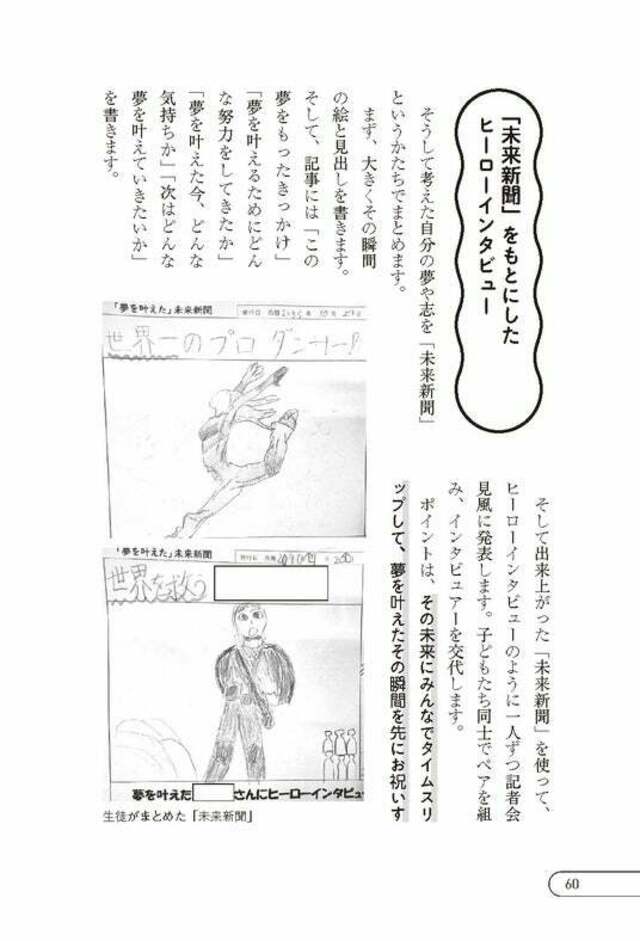 「未来新聞」をもとにした
ヒーローインタビュー
そうして考えた自分の夢や志を「未来新聞」
というかたちでまとめます。
まず、大きくその瞬間
の絵と見出しを書きます。
そして、記事には「この
夢をもったきっかけ」
「夢を叶えるためにどん
な努力をしてきたか」
「夢を叶えた今、どんな
気持ちか」「次はどんな
夢を叶えていきたいか」
を書きます。
「夢を叶えた」未来新聞
発行日 西暦
世界一のプロ ダンサー!
「夢を叶えた」未来新聞
発行日 西暦
世界を救う
夢を叶えた
さんにヒーローインタビュ
生徒がまとめた「未来新聞」
そして出来上がった「未来新聞」を使って、
ヒーローインタビューのように一人ずつ記者会
見風に発表します。子どもたち同士でペアを組
み、インタビュアーを交代します。
ポイントは、その未来にみんなでタイムスリ
ップして、夢を叶えたその瞬間を先にお祝いす
60